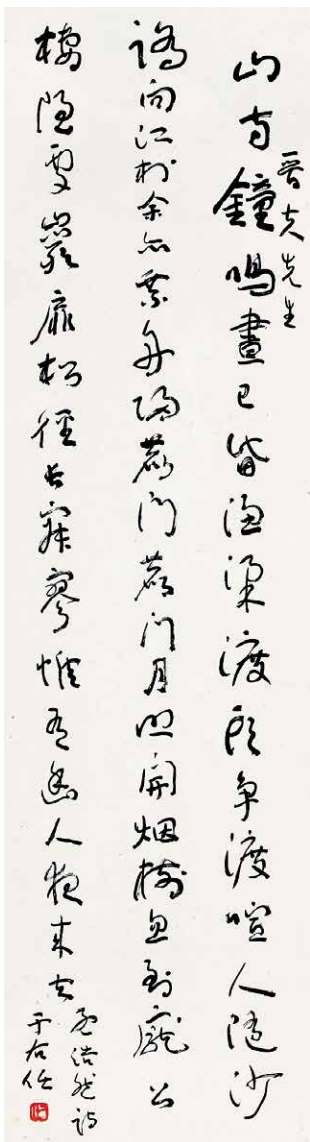 晉夫先生
山寺鐘鳴晝已昏漁梁渡頭爭渡喧人隨沙
路向江村余亦乘舟歸鹿門鹿門月照開烟樹忽到龐公
棲隱處巖扉松徑長寂寥惟有幽人夜來去
孟浩然詩
于右任